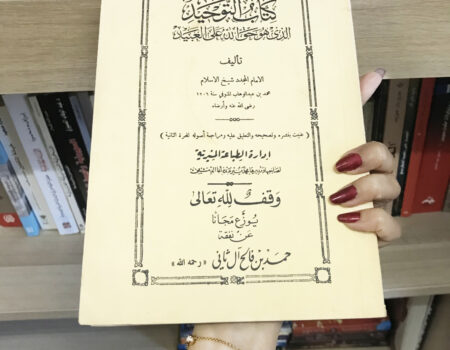 كتاب التوحيد
الذي هو حق الله على العبيد
تأليف
الامام المجدد شيخ الاسلام
محمد بن عبد الوهاب المتوفى سنة ١٢٠٦
رضى الله عنه وأرضاه
( عنيت بنشره وتصحيحه والتعليق عليه ومراجعة أصوله للمرة الثانية )
ادارة الطباعة المنيرية
وقف لله تعالى
يوزع مجانا
عن نفقة
حمد بن فالح آل ثاني « رحمه الله »